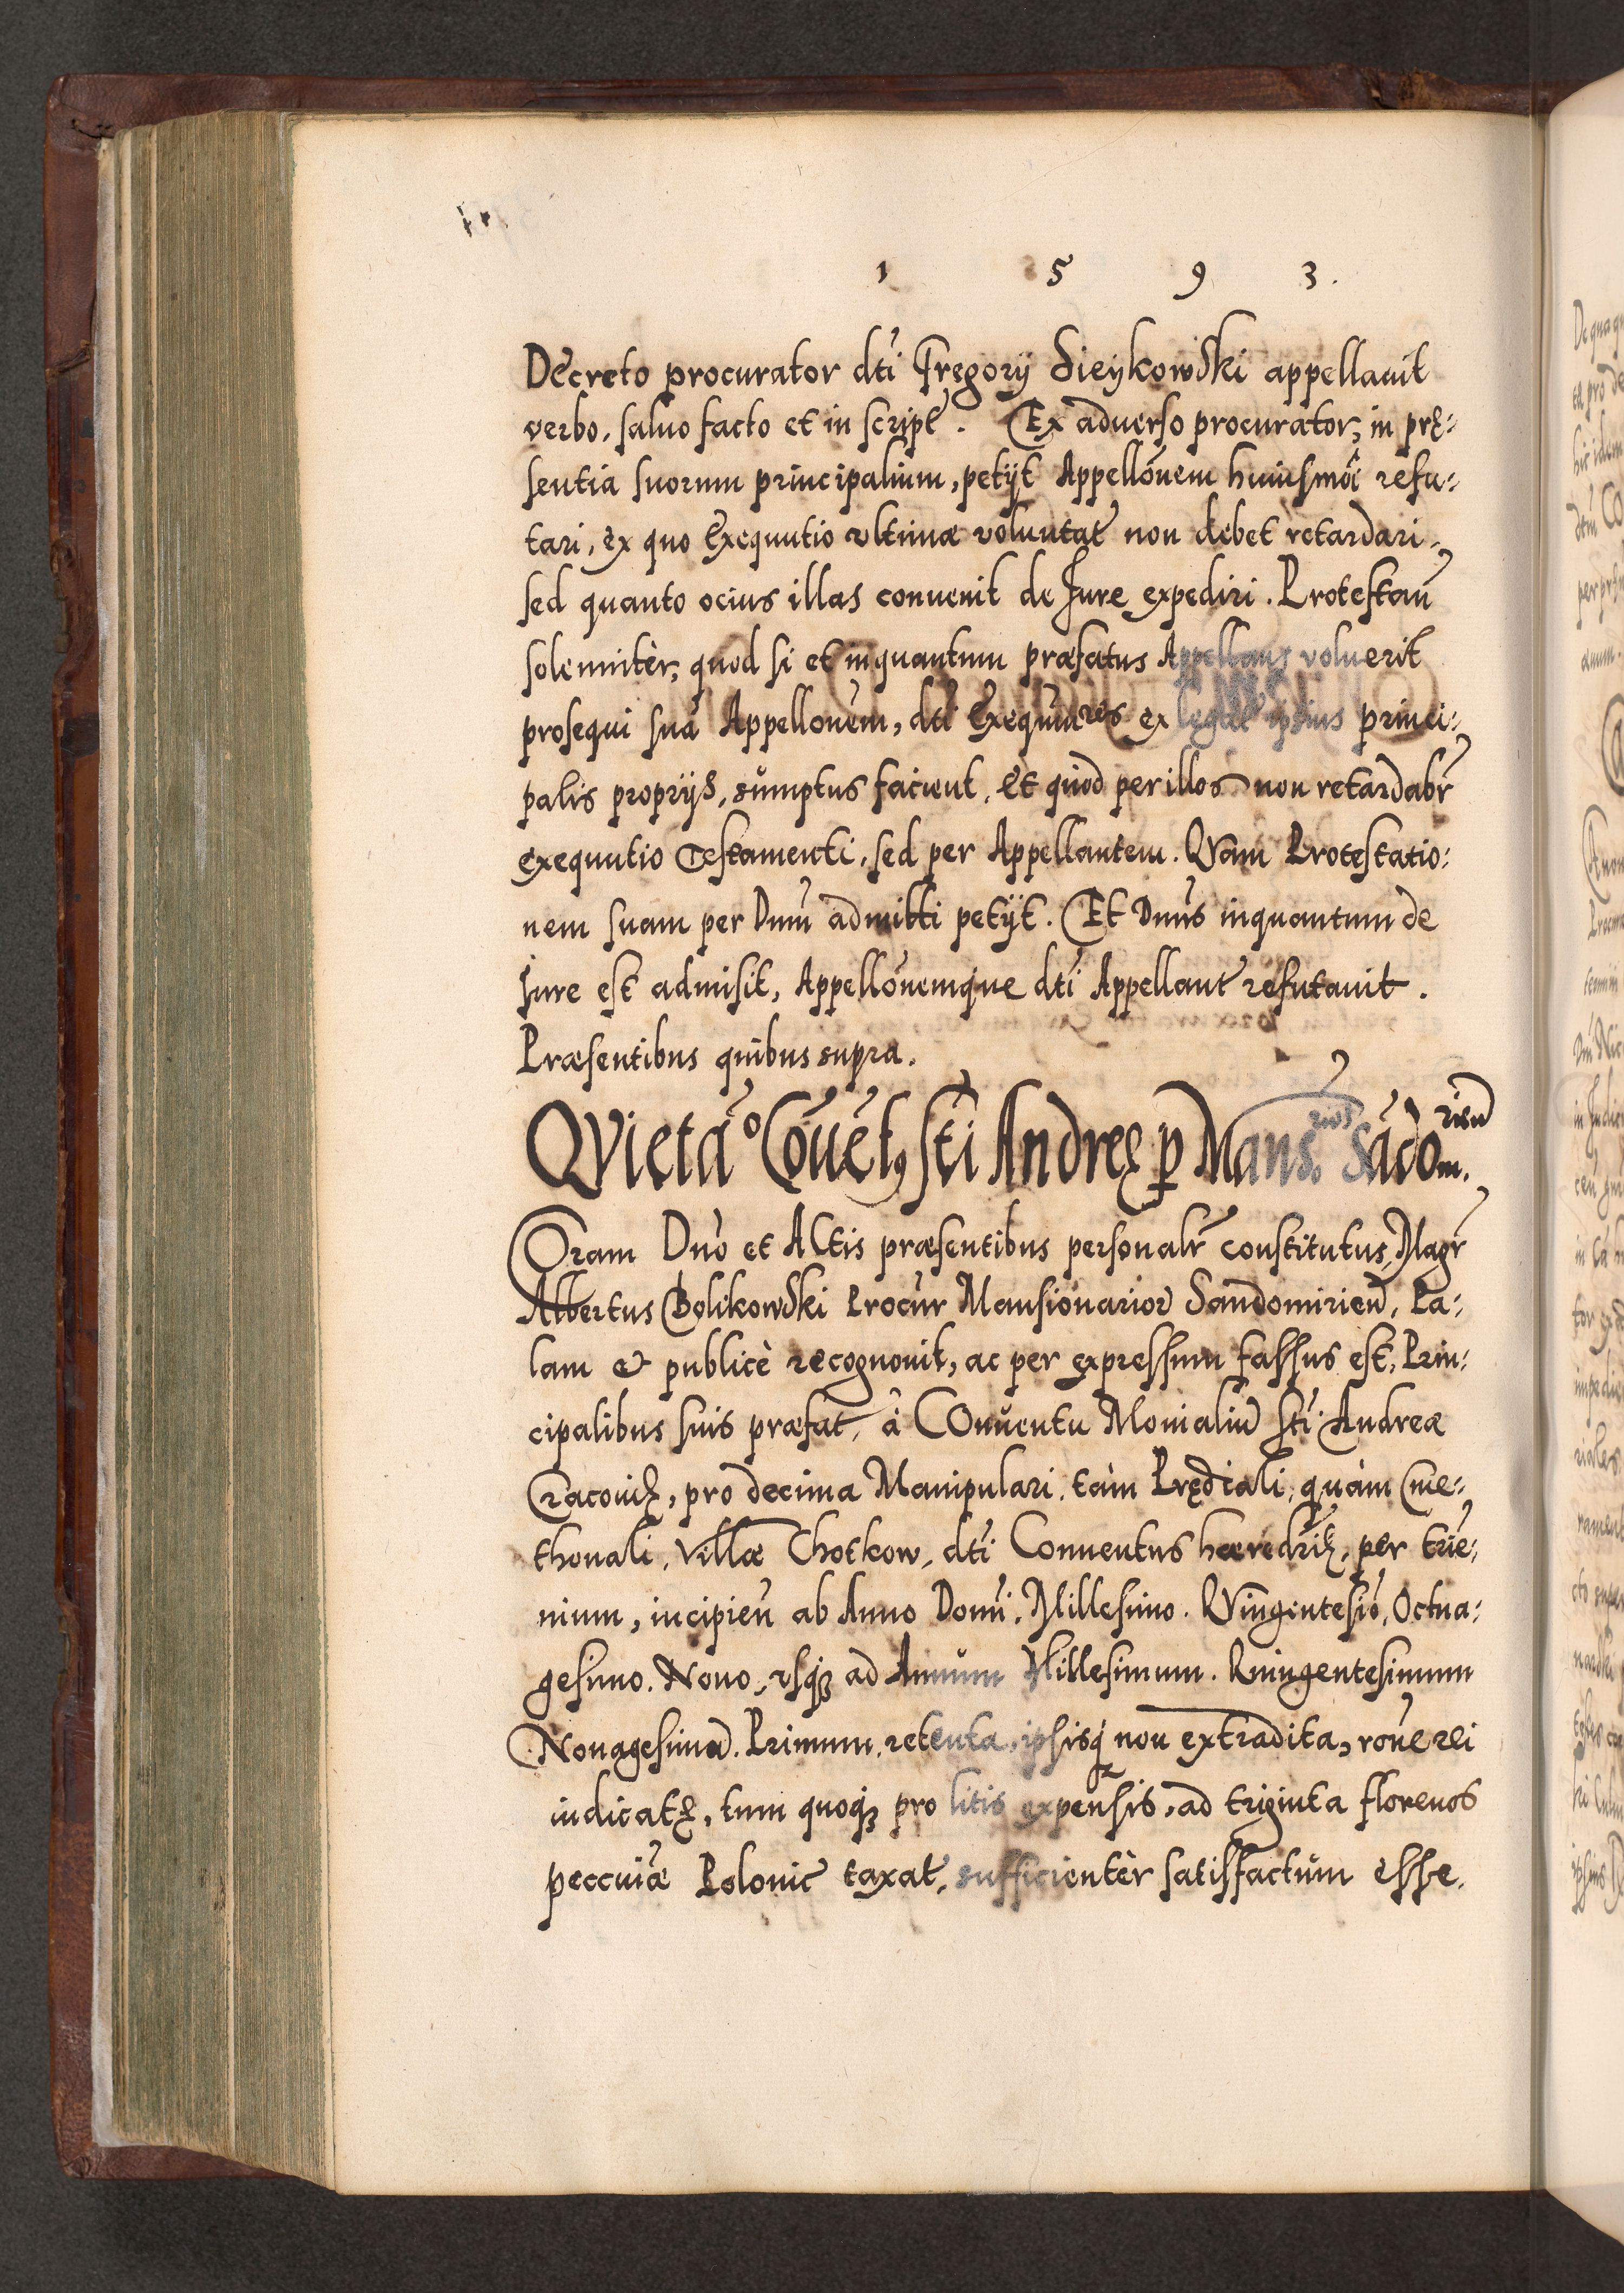 1 5 9 3.
Decreto procurator dti Gregorÿ Sieykowski appellauit
verbo, saluo facto et in script. Ex aduerso procurator, in prę-
sentia suorum principalium, petÿt Appellōnem huiusmoi refu-
tari, ex quo Exequutio vltimæ voluntat non debet retardari,
sed quanto ocius illas conuenit de Jure expediri. Protestan̄
solemnitèr, quod si et inquantum præfatus Appellans voluerit
prosequi suā Appellonēm, dti Exequutores ex legat ipsius princi-
palis proprÿs, sumptus facient, Et quod per illos non retardabr
exequutio Testamenti, sed per Appellantem. Quam Protestatio-
nem suam per Dnm̄ admitti petÿt. Et Dnus inquantum de
Jure est admisit, Appellōnemque dti Appellant refutauit.
Præsentibus quibus supra.
Quietāo Cōuēt9 sti Andreę p Mans.rios Sādomrien̄
Coram Dnō et Actis præsentibus personalr constitutus, Magr
Albertus Bolikowski Procur Mansionarior Sandomirien̄, Pa-
lam & publicè recognouit, ac per expressum fassus est, Prin-
cipalibus suis præfat, à Conuentu Monialiū sti Andreæ
Cracouię, pro decima Manipulari, tàm Prędiali, quàm Cme-
thonali, villæ Chotkow, dti Conuentus hæredrię, per trie-
nium, incipien̄ ab Anno Domi, Millesimo. Quingentesiō, Octua-
gesimo. Nono, vsq3 ad Annum Millesimum. Quingentesimum
Nonagesimū. Primum, retenta, ipsisq3 non extradita, rōne rei
iudicatę, tum quoq3 pro litis expensis, ad triginta florenos
peccuiæ Polonic taxat, sufficientèr satisfactum esse.